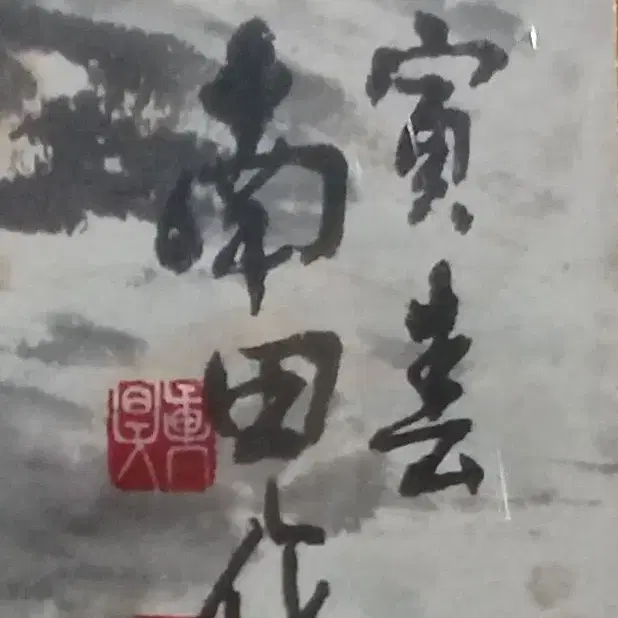 寅春
南田作